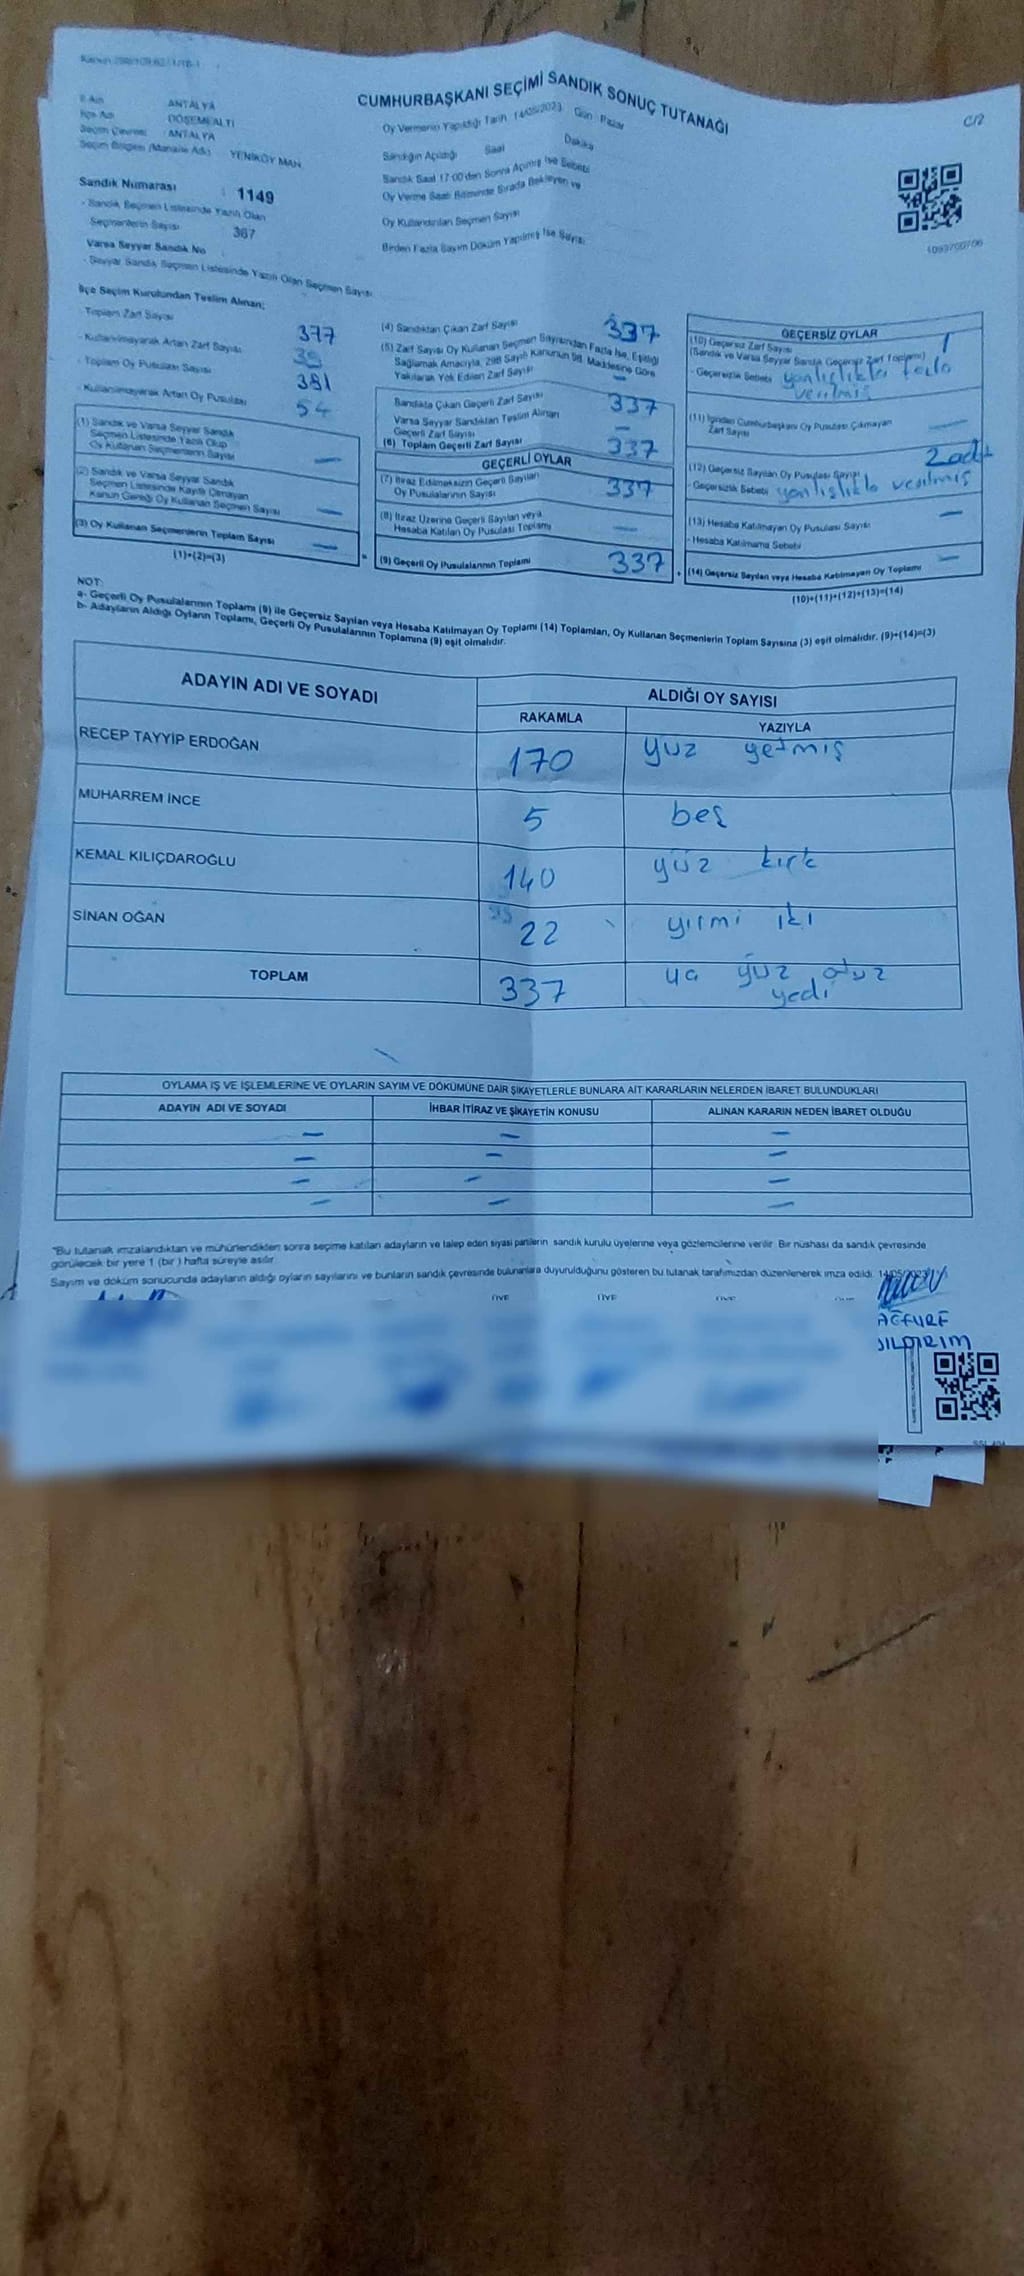 CUMHURBAŞKANI SEÇİMİ SANDIK SONUÇ TUTANAĞI
C/2
İl Adı ANTALYA
İlçe Adı DÖŞEMEALTI
Seçim Çevresi : ANTALYA
Seçim Bölgesi (Mahalle Adı) : YENİKÖY MAH.
Sandık Numarası : 1149
- Sandık Seçmen Listesinde Yazılı Olan
Seçmenlerin Sayısı : 367
Varsa Seyyar Sandık No :
- Seyyar Sandık Seçmen Listesinde Yazılı Olan Seçmen Sayısı:
Oy Vermenin Yapıldığı Tarih : 14/05/2023 Gün : Pazar
Sandığın Açıldığı Saat Dakika
Sandık Saat 17:00'den Sonra Açılmış İse Sebebi
Oy Verme Saati Bitiminde Sırada Bekleyen ve
Oy Kullandırılan Seçmen Sayısı
Birden Fazla Sayım Döküm Yapılmış İse Sayısı:
İlçe Seçim Kurulundan Teslim Alınan;
- Toplam Zarf Sayısı 377
- Kullanılmayarak Artan Zarf Sayısı
- Toplam Oy Pusulası Sayısı 381
- Kullanılmayarak Artan Oy Pusulası 54
(1) Sandık ve Varsa Seyyar Sandık
Seçmen Listesinde Yazılı Olup
Oy Kullanan Seçmenlerin Sayısı —
(2) Sandık ve Varsa Seyyar Sandık
Seçmen Listesinde Kayıtlı Olmayan
Kanun Gereği Oy Kullanan Seçmen Sayısı —
(3) Oy Kullanan Seçmenlerin Toplam Sayısı —
(1)+(2)=(3)
(4) Sandıktan Çıkan Zarf Sayısı 337
(5) Zarf Sayısı Oy Kullanan Seçmen Sayısından Fazla İse, Eşitliği
Sağlamak Amacıyla, 298 Sayılı Kanunun 98. Maddesine Göre
Yakılarak Yok Edilen Zarf Sayısı —
Sandıkta Çıkan Geçerli Zarf Sayısı 337
Varsa Seyyar Sandıktan Teslim Alınan
Geçerli Zarf Sayısı —
(6) Toplam Geçerli Zarf Sayısı 337
GEÇERLİ OYLAR
(7) İtiraz Edilmeksizin Geçerli Sayılan
Oy Pusulalarının Sayısı 337
(8) İtiraz Üzerine Geçerli Sayılan veya
Hesaba Katılan Oy Pusulası Toplamı —
(9) Geçerli Oy Pusulalarının Toplamı 337
GEÇERSİZ OYLAR
(10) Geçersiz Zarf Sayısı 1
(Sandık ve Varsa Seyyar Sandık Geçersiz Zarf Toplamı)
- Geçersizlik Sebebi yanlışlıkla fazla
verilmiş
(11) İçinden Cumhurbaşkanı Oy Pusulası Çıkmayan
Zarf Sayısı —
(12) Geçersiz Sayılan Oy Pusulası Sayısı 2 adet
- Geçersizlik Sebebi yanlışlıkla verilmiş
(13) Hesaba Katılmayan Oy Pusulası Sayısı —
- Hesaba Katılmama Sebebi
(14) Geçersiz Sayılan veya Hesaba Katılmayan Oy Toplamı —
(10)+(11)+(12)+(13)=(14)
NOT:
a- Geçerli Oy Pusulalarının Toplamı (9) ile Geçersiz Sayılan veya Hesaba Katılmayan Oy Toplamı (14) Toplamları, Oy Kullanan Seçmenlerin Toplam Sayısına (3) eşit olmalıdır. (9)+(14)=(3)
b- Adayların Aldığı Oyların Toplamı, Geçerli Oy Pusulalarının Toplamına (9) eşit olmalıdır.
ADAYIN ADI VE SOYADI ALDIĞI OY SAYISI
RAKAMLA YAZIYLA
RECEP TAYYİP ERDOĞAN 170 yüz yetmiş
MUHARREM İNCE 5 beş
KEMAL KILIÇDAROĞLU 140 yüz kırk
SİNAN OĞAN 22 yirmi iki
TOPLAM 337 üç yüz otuz
yedi
OYLAMA İŞ VE İŞLEMLERİNE VE OYLARIN SAYIM VE DÖKÜMÜNE DAİR ŞİKAYETLERLE BUNLARA AİT KARARLARIN NELERDEN İBARET BULUNDUKLARI
ADAYIN ADI VE SOYADI İHBAR İTİRAZ VE ŞİKAYETİN KONUSU ALINAN KARARIN NEDEN İBARET OLDUĞU
— — —
— — —
— — —
— — —
"Bu tutanak imzalandıktan ve mühürlendikten sonra seçime katılan adayların ve talep eden siyasi partilerin sandık kurulu üyelerine veya gözlemcilerine verilir. Bir nüshası da sandık çevresinde
görülecek bir yere 1 (bir) hafta süreyle asılır.
Sayım ve döküm sonucunda adayların aldığı oyların sayılarını ve bunların sandık çevresinde bulunanlara duyurulduğunu gösteren bu tutanak tarafımızdan düzenlenerek imza edildi.
ÜYE ÜYE ÜYE